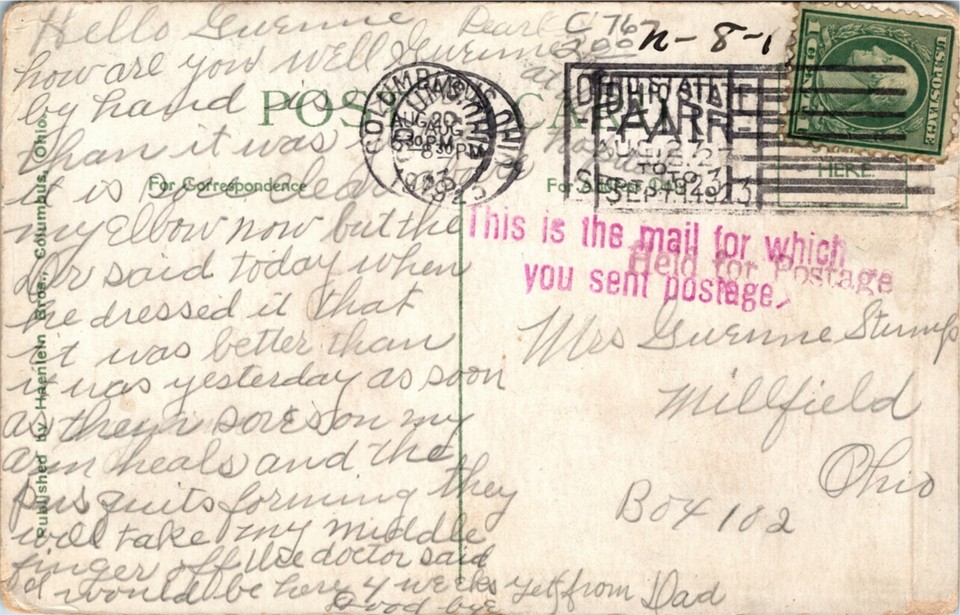 Hello Guenne
how are you Well Guenne
by hand is
than it was
it is Poes clear
my Elbow now but the
Dr said today when
he dressed it that
it was better than
it was yesterday as soon
as them sores on my
arm heals and the
pus quits forming they
will take my middle
finger off the doctor said
I would be here 4 weeks yet from Dad
Good bye
Pearl
at
C 767
300
n-8-1
POST CARD
For Correspondence
For Address
HERE.
Published by Haenlein Bros., Columbus, Ohio.
COLUMBUS, OHIO
AUG 20
8 30 PM
1923
OHIO STATE
FAIR
AUG. 27
TO
SEPT. 1 1923
U.S. POSTAGE
This is the mail for which
you sent postage.
Held for Postage
Mrs Guenne Stump
Millfield
Ohio
Box 102